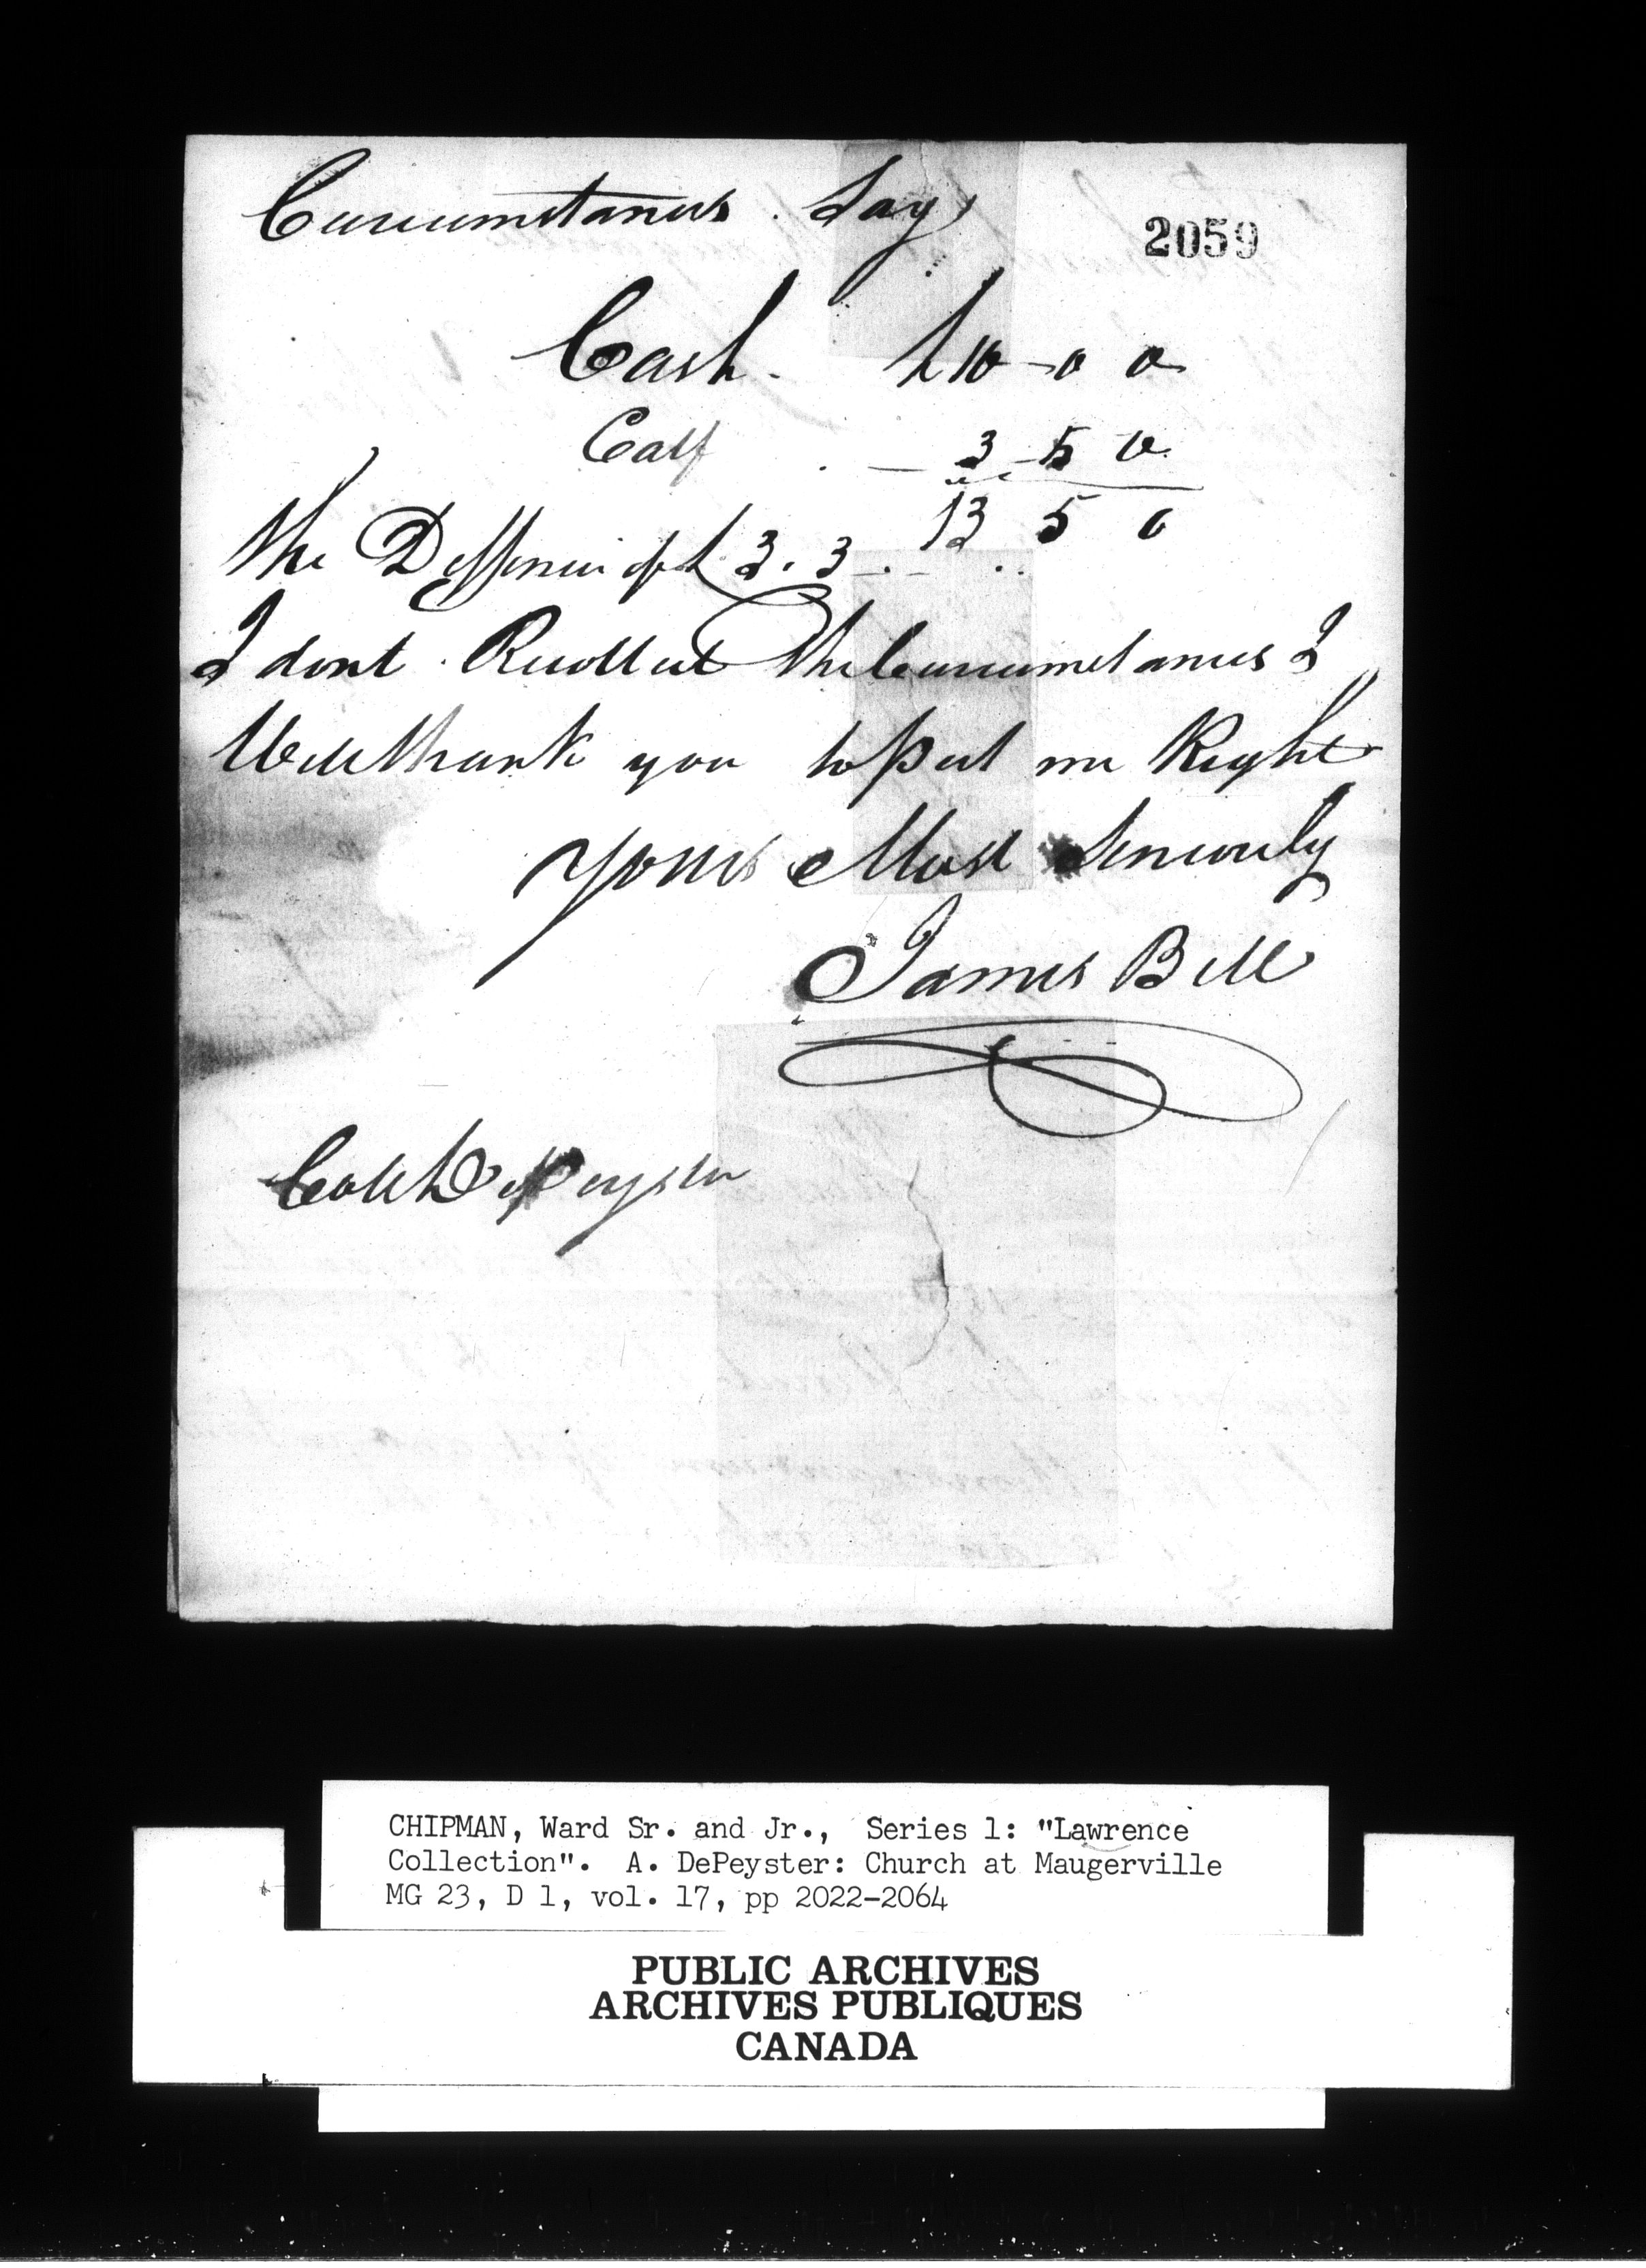 Circumstances Say
2059
Cash. £10 - 0 0
Calf . - 3 - 5 0
13 5 0
the Defference of £ 3. 3
I dont Recollect the Circumstances I
Will thank you to Put me Right
Yours Most Sincerely
James Bell
DePeyster
CHIPMAN, Ward Sr. and Jr., Series 1: "Lawrence
Collection". A. DePeyster: Church at Maugerville
MG 23, D 1, vol. 17, pp 2022-2064
PUBLIC ARCHIVES
ARCHIVES PUBLIQUES
CANADA